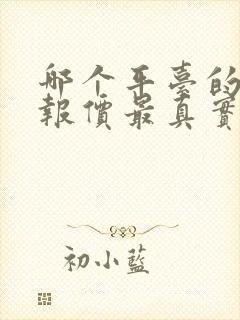 哪个平臺的
報價最真實
初小藍